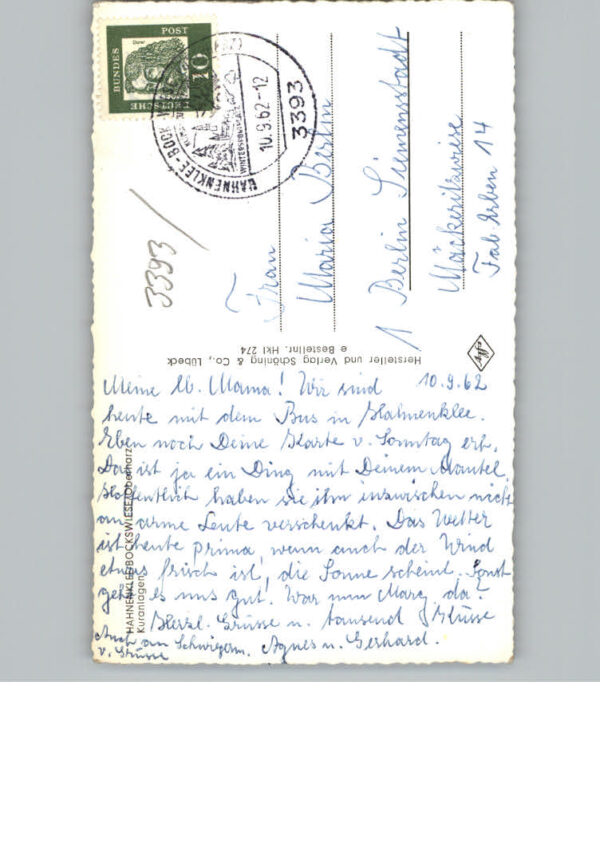 DEUTSCHE
BUNDES
POST
10
HAHNENKLEE-BOCK
10.9.62-12
3393
3393
Frau
Maria Berlin
1 Berlin Siemensstadt
Mäckeritzwiese
Fab. Erben 14
Hersteller und Verlag Schöning & Co., Lübeck
e Bestellnr. Hkl 274
HAHNENKLEE-BOCKSWIESE/Oberharz
Kuranlagen
Meine lb. Mama! Wir sind 10.9.62
heute mit dem Bus in Hahnenklee.
Eben noch Deine Karte v. Sonntag erh.
Das ist ja ein Ding mit Deinem Mantel.
Hoffentlich haben sie ihn inzwischen nicht
an arme Leute verschenkt. Das Wetter
ist heute prima, wenn auch der Wind
etwas frisch ist, die Sonne scheint. Sonst
geht es uns gut. War nun Marg. da?
Herzl. Grüsse u. tausend Küsse
Agnes u. Gerhard.
Auch an Schwiegerm.
v. Grüsse